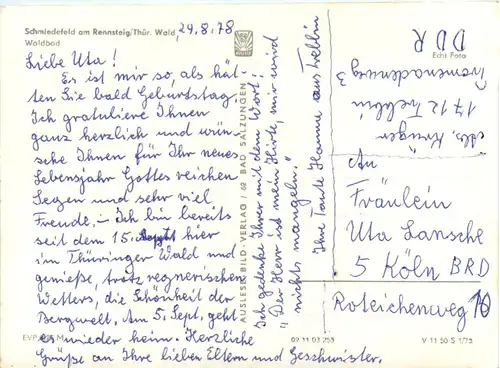 Schmiedefeld am Rennsteig/Thür. Wald
Waldbad
29.8.78
Liebe Uta!
Es ist mir so, als hät-
ten Sie bald Geburtstag.
Ich gratuliere Ihnen
ganz herzlich und wün-
sche Ihnen für Ihr neues
Lebensjahr Gottes reichen
Segen und sehr viel
Freude. – Ich bin bereits
seit dem 15. hier
im Thüringer Wald und
genieße, trotz regnerischen
Wetters, die Schönheit der
Bergwelt. Am 5. Sept. geht
es wieder heim. Herzliche
Grüße an Ihre lieben Eltern und Geschwister.
Ich gedenke Ihrer mit dem Wort:
"Der Herr ist mein Hirte, mir wird
nichts mangeln."
Ihre Tante Hanna aus Trebbin
AUSLESE-BILD-VERLAG / 62 BAD SALZUNGEN
Echt Foto
Abs. Krüger
1712 Trebbin
Promenadenweg 3
DDR
An
Fräulein
Uta Lansche
5 Köln BRD
Roteichenweg 10
EVP
09 11 03 253
V 11 50 S 1/75